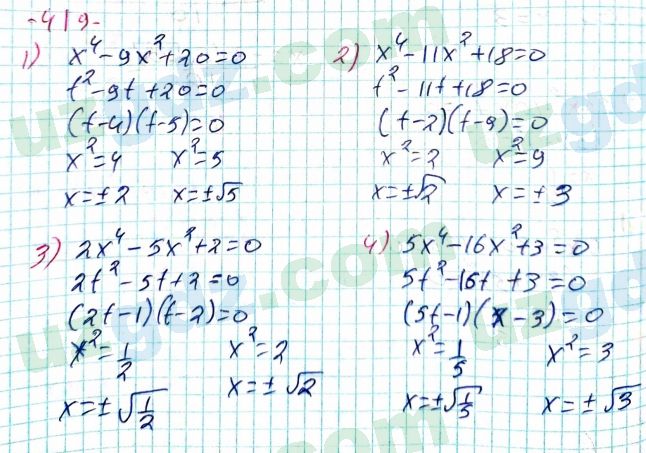 -419-
1) x⁴-9x²+20=0
t²-9t+20=0
(t-4)(t-5)=0
x²=4 x²=5
x=±2 x=±√5
2) x⁴-11x²+18=0
t²-11t+18=0
(t-2)(t-9)=0
x²=2 x²=9
x=±√2 x=±3
3) 2x⁴-5x²+2=0
2t²-5t+2=0
(2t-1)(t-2)=0
x²=1/2 x²=2
x=±√(1/2) x=±√2
4) 5x⁴-16x²+3=0
5t²-16t+3=0
(5t-1)(x-3)=0
x²=1/5 x²=3
x=±√(1/5) x=±√3